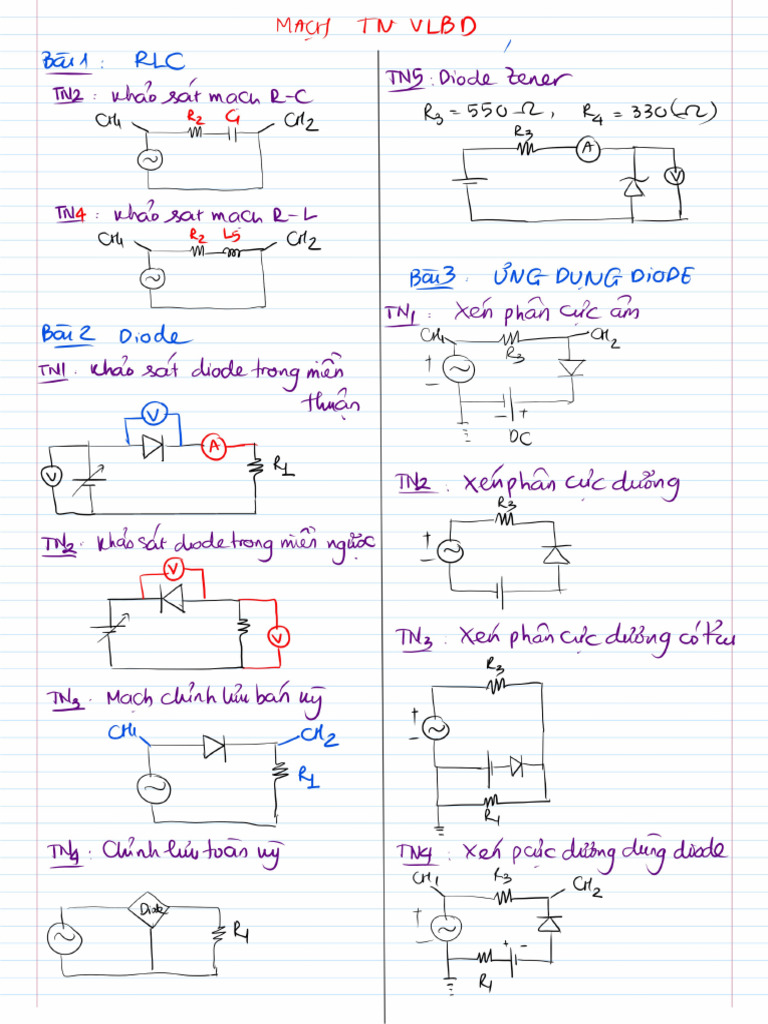 MẠCH TN VLBD
Bài 1: RLC
TN2: Khảo sát mạch R-C
CH1 R2 C1 CH2
TN4: Khảo sát mạch R-L
CH1 R2 L5 CH2
Bài 2 Diode
TN1. Khảo sát diode trong miền
thuận
V
V A R1
TN2. Khảo sát diode trong miền ngược
V
V
TN3. Mạch chỉnh lưu bán kỳ
CH1 CH2
R1
TN4: Chỉnh lưu toàn kỳ
Diode
R1
TN5: Diode Zener
R3 = 550 Ω, R4 = 330 (Ω)
R3 A
V
Bài 3: ỨNG DỤNG DIODE
TN1: Xén phân cực âm
CH1 R3 CH2
+
−
− +
DC
TN2: Xén phân cực dương
R3
+
−
TN3: Xén phân cực dương có
R3
+
−
R1
TN4: Xén p cực dương dùng diode
CH1 R3 CH2
+
−
+ −
R1